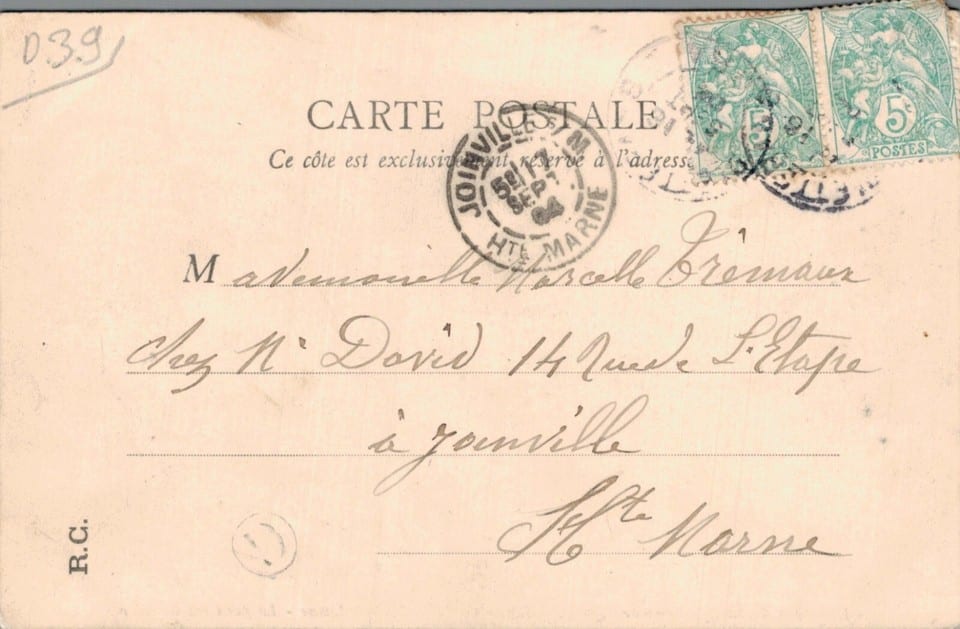 D39
CARTE POSTALE
Ce côte est exclusivement réservé à l'adresse
JOINVILLE S/M
5
SEPT
04
HTE MARNE
5c
5c
POSTES
Mademoiselle Marcelle Trémaux
chez Mr David 14 Rue de L'Etape
à Joinville
Hte Marne
R.C.